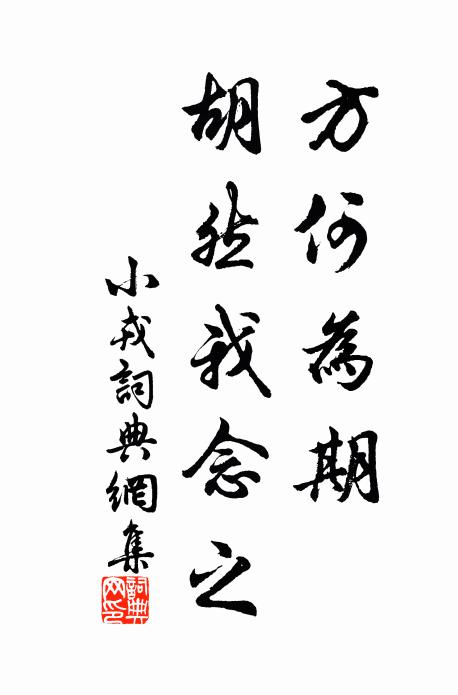 方何為期
胡然我念之
小戎詞典網集
詞典網印